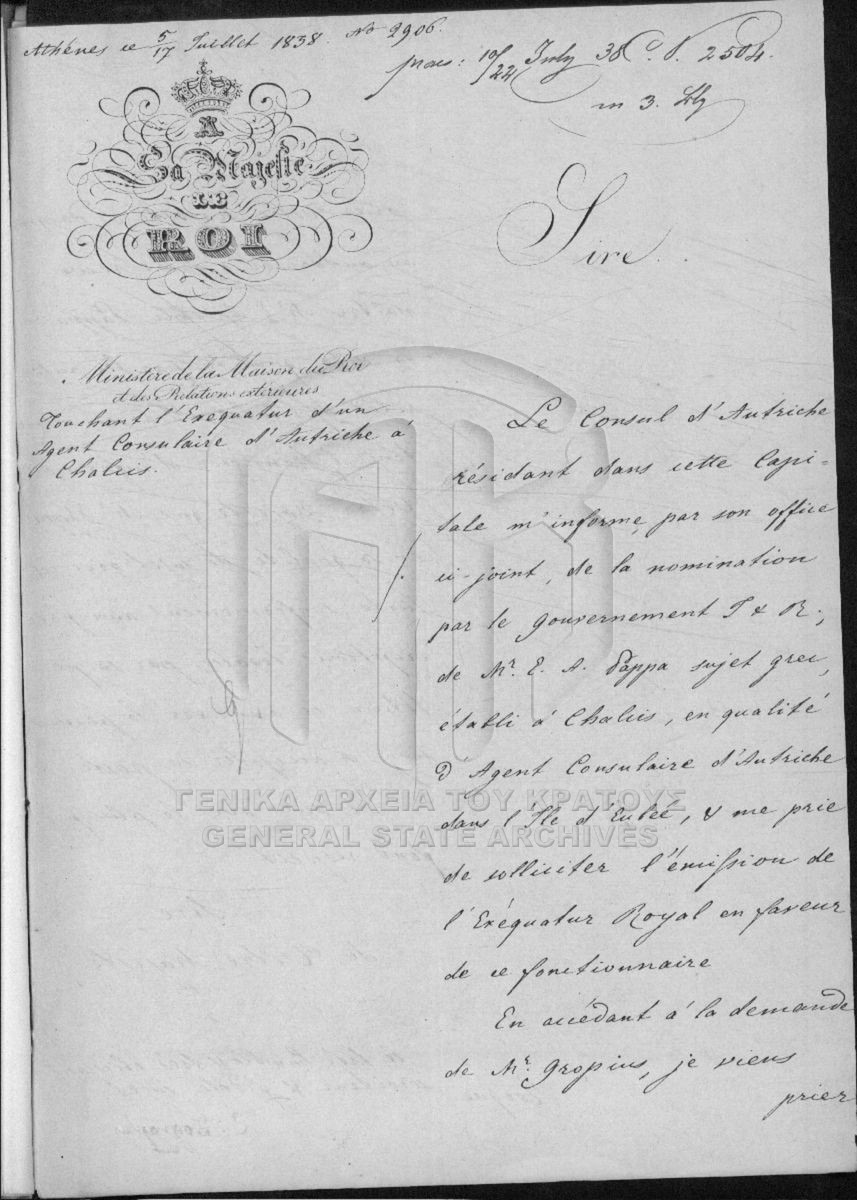 Athénes ce 5/17 Juillet 1838. No 2906.
praes: 10/22 July 38 C. N. 2504.
in 3.
A
Sa Majestie
LE
ROI
Sire.
Ministere de la Maison du Roi
et des Relations extérieures
Touchant l'Exequatur d'un
Agent Consulaire d'Autriche à
Chalcis.
Le Consul d'Autriche
résidant dans cette Capi-
tale m'informe, par son office
ci-joint, de la nomination
par le gouvernement I & R;
de Mr. E. A. Pappa sujet grec,
établi à Chalcis, en qualité
d'Agent Consulaire d'Autriche
dans l'Ile d'Eubée, & me prie
de solliciter l'émission de
l'Exéquatur Royal en faveur
de ce fonctionnaire
En accédant à la demande
de Mr. Gropius, je viens
prier
ΓΕΝΙΚΑ ΑΡΧΕΙΑ ΤΟΥ ΚΡΑΤΟΥΣ
GENERAL STATE ARCHIVES